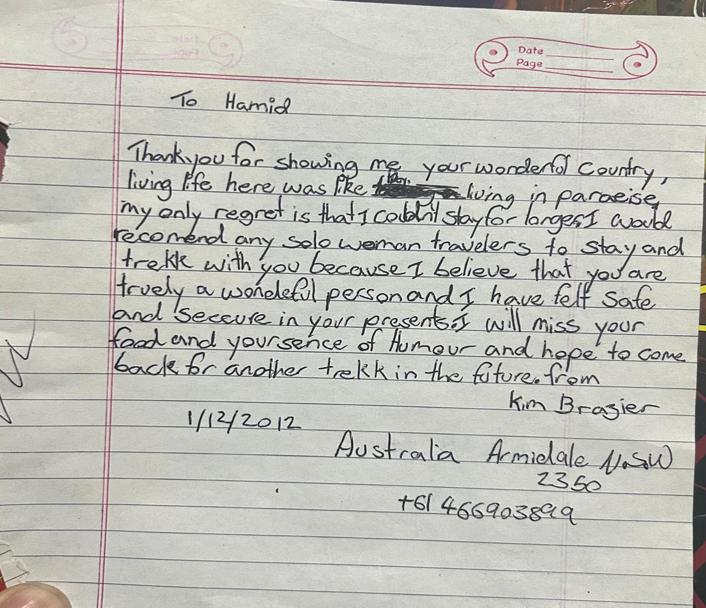 Date
Page
To Hamid
Thankyou for showing me your wonderful country,
living life here was like living in paraeise,
my only regret is that I couldn't stay for longer. I would
recomend any solo woman travelers to stay and
trekk with you because I believe that you are
truely a wondeful person and I have felt safe
and seccure in your presents. I will miss your
food and your sence of Humour and hope to come
back for another trekk in the future. from
Kim Brazier
1/12/2012
Australia Armidale N.S.W
2350
+61 466903899